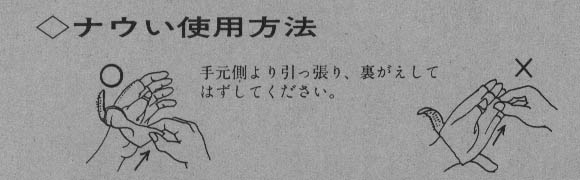 ◇ナウい使用方法
○
手元側より引っ張り、裏がえして
はずしてください。
×